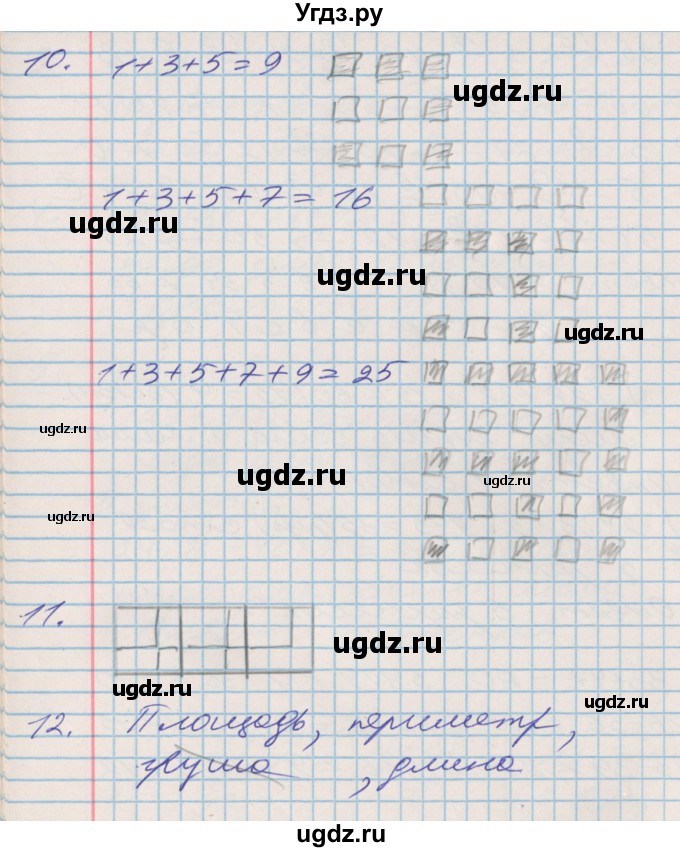 Угдз.ру
10. 1+3+5=9
ugdz.ru
1+3+5+7=16
ugdz.ru
ugdz.ru
ugdz.ru
1+3+5+7+9=25
ugdz.ru
ugdz.ru
ugdz.ru
ugdz.ru
11.
ugdz.ru
ugdz.ru
ugdz.ru
12. Площадь, периметр,
груша, длина
ugdz.ru